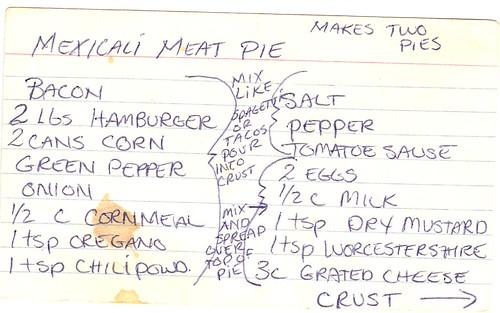 MEXICALI MEAT PIE
MAKES TWO
PIES
BACON
2 LBS HAMBURGER
2 CANS CORN
GREEN PEPPER
ONION
1/2 C CORNMEAL
1 tsp OREGANO
1 tsp CHILIPOWD.
MIX
LIKE
SPAGETTI
OR
TACOS
POUR
INTO
CRUST
SALT
PEPPER
TOMATOE SAUSE
MIX
AND
SPREAD
OVER
TOP OF
PIE
2 EGGS
1/2 C MILK
1 tsp DRY MUSTARD
1 tsp WORCESTERSHIRE
3C GRATED CHEESE
CRUST →